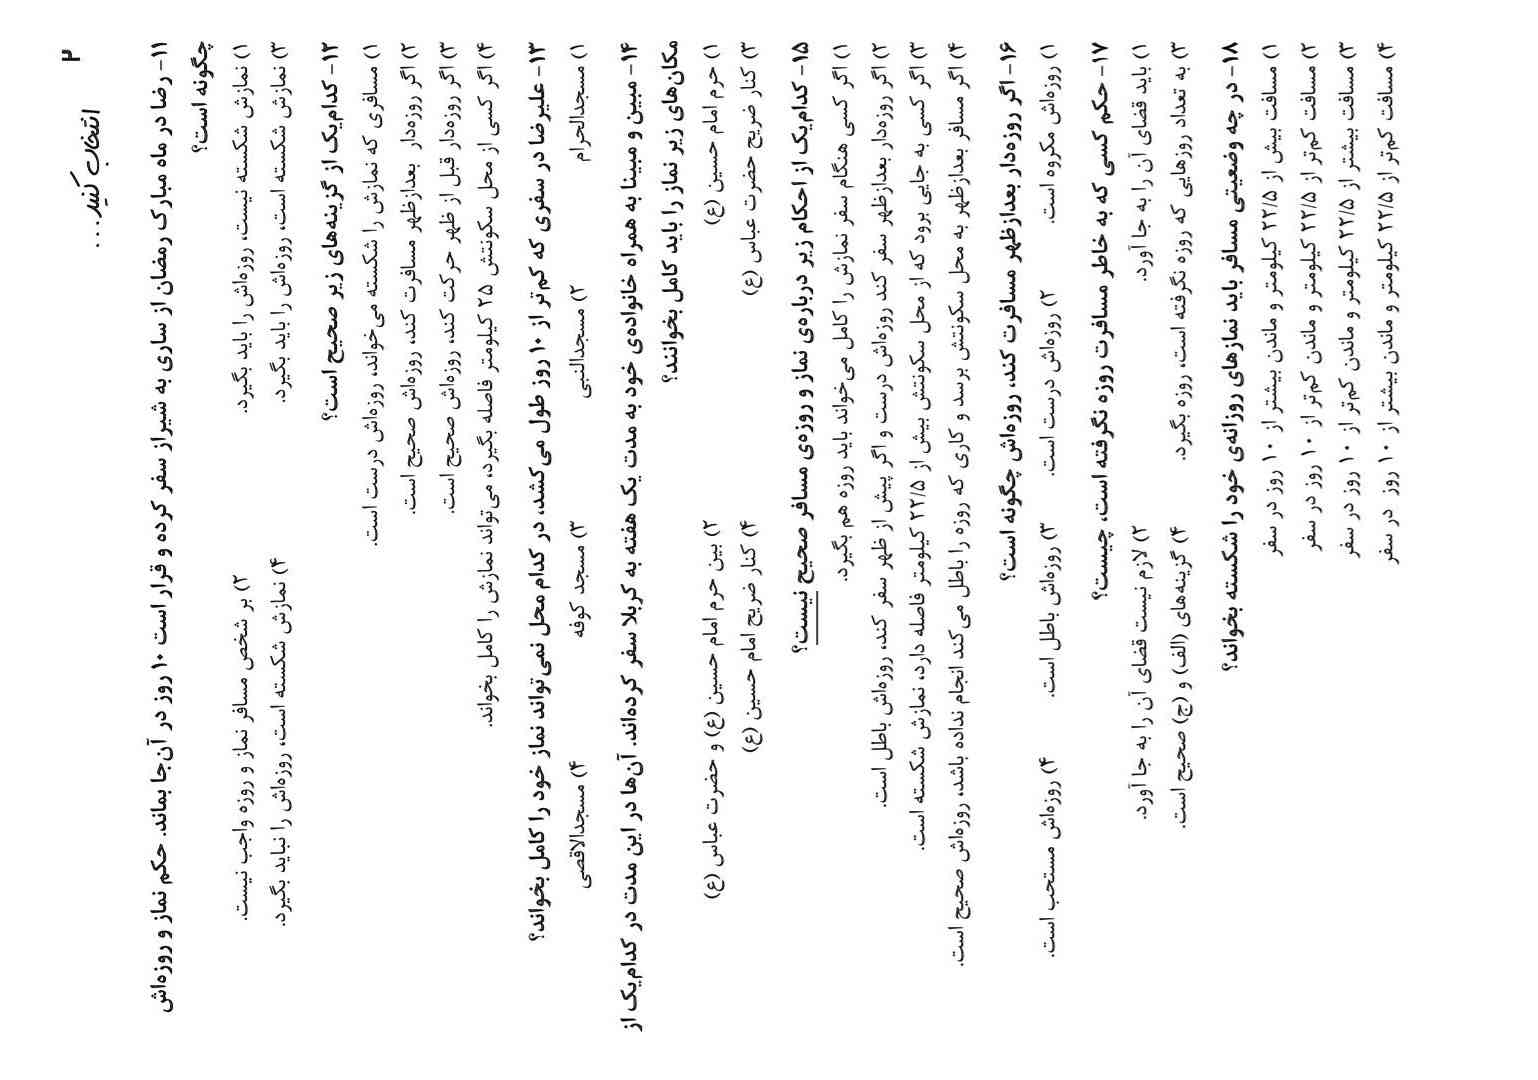 ۲
انتخاب کنید...
۱۱- رضا در ماه مبارک رمضان از ساری به شیراز سفر کرده و قرار است ۱۰ روز در آن‌جا بماند. حکم نماز و روزه‌اش
چگونه است؟
۱) نمازش شکسته نیست، روزه‌اش را باید بگیرد. ۲) بر شخص مسافر نماز و روزه واجب نیست.
۳) نمازش شکسته است، روزه‌اش را باید بگیرد. ۴) نمازش شکسته است، روزه‌اش را نباید بگیرد.
۱۲- کدام‌یک از گزینه‌های زیر صحیح است؟
۱) مسافری که نمازش را شکسته می‌خواند، روزه‌اش درست است.
۲) اگر روزه‌دار بعدازظهر مسافرت کند، روزه‌اش صحیح است.
۳) اگر روزه‌دار قبل از ظهر حرکت کند، روزه‌اش صحیح است.
۴) اگر کسی از محل سکونتش ۲۵ کیلومتر فاصله بگیرد، می‌تواند نمازش را کامل بخواند.
۱۳- علیرضا در سفری که کم‌تر از ۱۰ روز طول می‌کشد، در کدام محل نمی‌تواند نماز خود را کامل بخواند؟
۱) مسجدالحرام ۲) مسجدالنبی ۳) مسجد کوفه ۴) مسجدالاقصی
۱۴- مبین و مبینا به همراه خانواده‌ی خود به مدت یک هفته به کربلا سفر کرده‌اند. آن‌ها در این مدت در کدام‌یک از
مکان‌های زیر نماز را باید کامل بخوانند؟
۱) حرم امام حسین (ع) ۲) بین حرم امام حسین (ع) و حضرت عباس (ع)
۳) کنار ضریح حضرت عباس (ع) ۴) کنار ضریح امام حسین (ع)
۱۵- کدام‌یک از احکام زیر درباره‌ی نماز و روزه‌ی مسافر صحیح نیست؟
۱) اگر کسی هنگام سفر نمازش را کامل می‌خواند باید روزه هم بگیرد.
۲) اگر روزه‌دار بعدازظهر سفر کند روزه‌اش درست و اگر پیش از ظهر سفر کند، روزه‌اش باطل است.
۳) اگر کسی به جایی برود که از محل سکونتش بیش از ۲۲/۵ کیلومتر فاصله دارد، نمازش شکسته است.
۴) اگر مسافر بعدازظهر به محل سکونتش برسد و کاری که روزه را باطل می‌کند انجام نداده باشد، روزه‌اش صحیح است.
۱۶- اگر روزه‌دار بعدازظهر مسافرت کند، روزه‌اش چگونه است؟
۱) روزه‌اش مکروه است. ۲) روزه‌اش درست است. ۳) روزه‌اش باطل است. ۴) روزه‌اش مستحب است.
۱۷- حکم کسی که به خاطر مسافرت روزه نگرفته است، چیست؟
۱) باید قضای آن را به جا آورد. ۲) لازم نیست قضای آن را به جا آورد.
۳) به تعداد روزهایی که روزه نگرفته است، روزه بگیرد. ۴) گزینه‌های (الف) و (ج) صحیح است.
۱۸- در چه وضعیتی مسافر باید نمازهای روزانه‌ی خود را شکسته بخواند؟
۱) مسافت بیش از ۲۲/۵ کیلومتر و ماندن بیشتر از ۱۰ روز در سفر
۲) مسافت کم‌تر از ۲۲/۵ کیلومتر و ماندن کم‌تر از ۱۰ روز در سفر
۳) مسافت بیشتر از ۲۲/۵ کیلومتر و ماندن کم‌تر از ۱۰ روز در سفر
۴) مسافت کم‌تر از ۲۲/۵ کیلومتر و ماندن بیشتر از ۱۰ روز در سفر